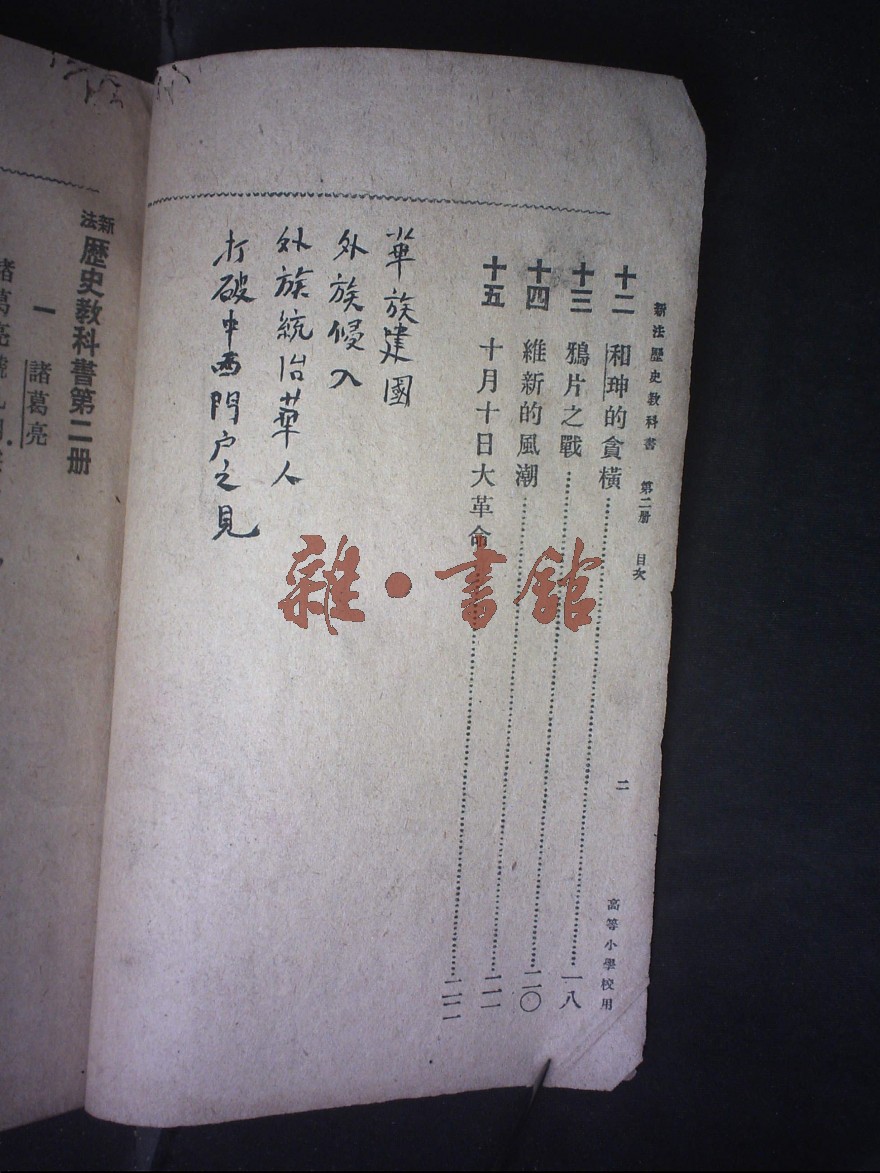 新法歷史教科書 第二册 目次 二 高等小學校用
十二 和珅的貪橫 一八
十三 鴉片之戰 二〇
十四 維新的風潮
十五 十月十日大革命
華族建國
外族侵入
外族統治華人
打破中西門户之見
雜·書館
新法歷史教科書第二册
一 諸葛亮
諸葛亮